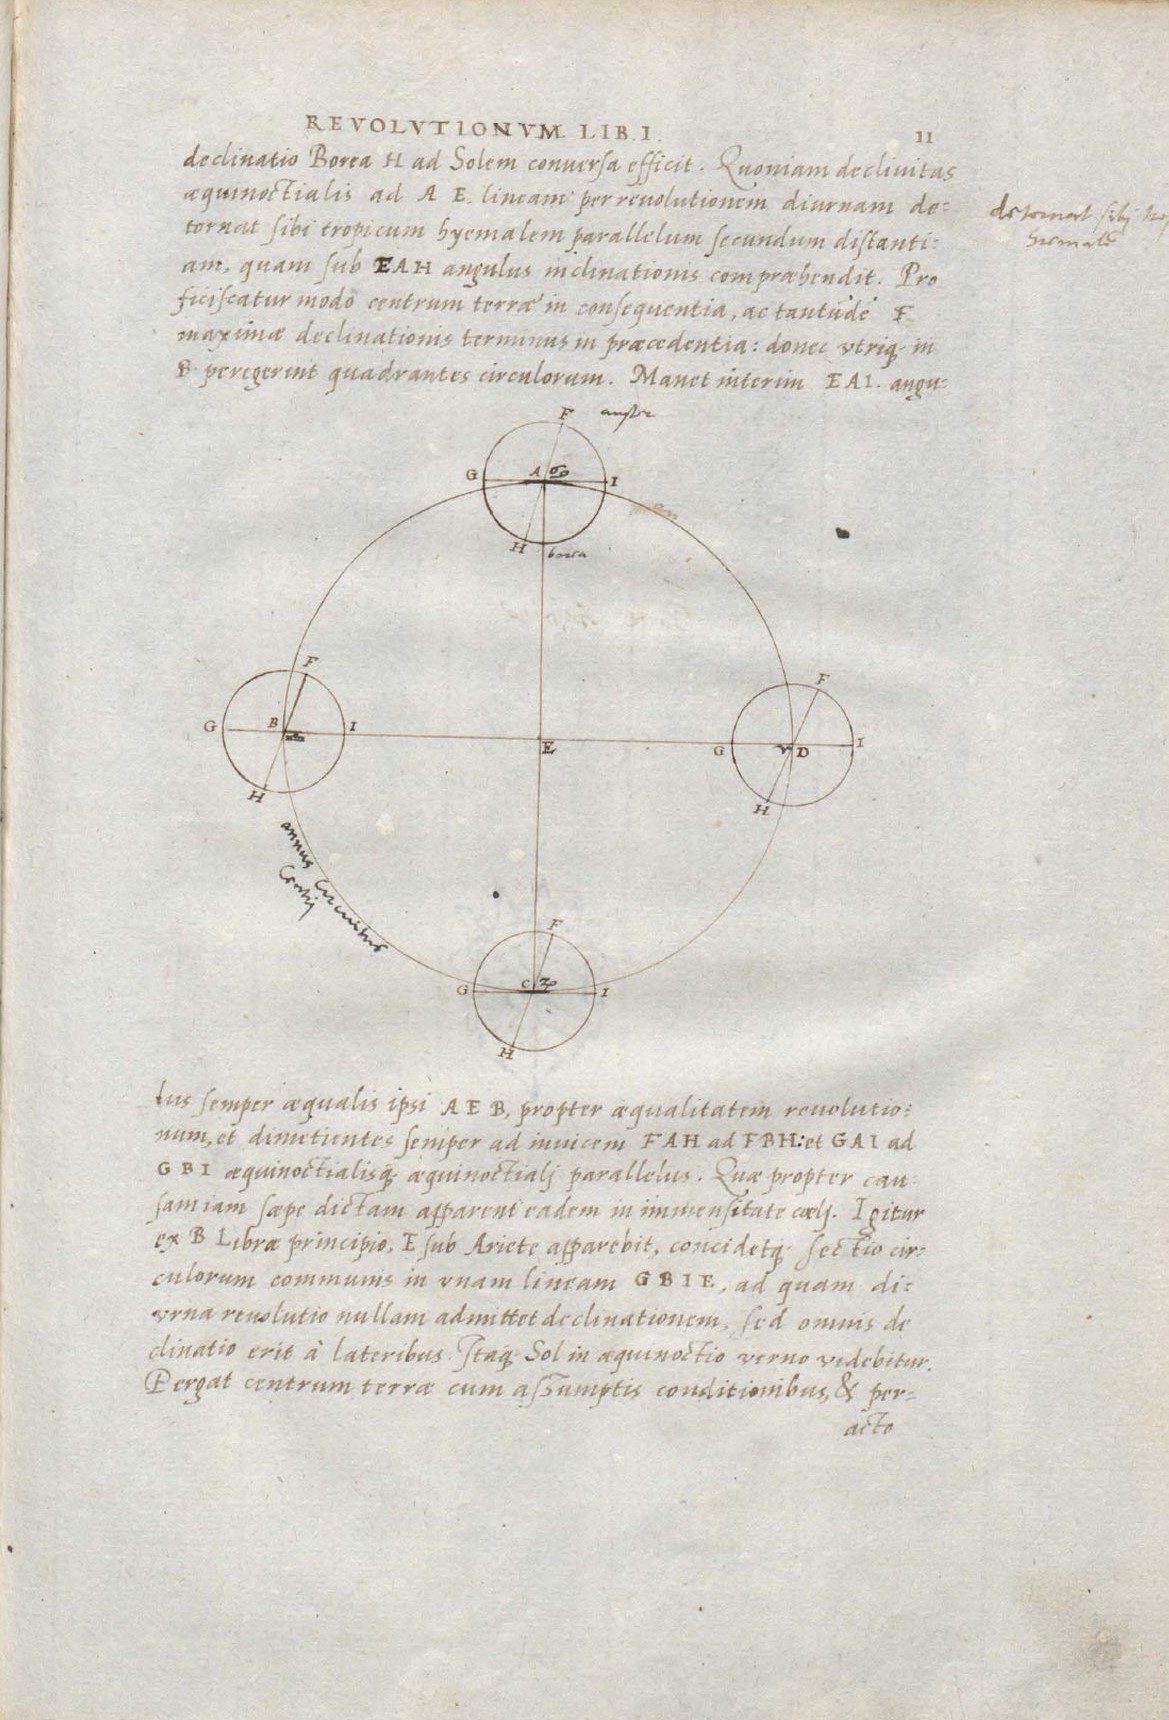 REVOLVTIONVM LIB. I.
11
declinatio Borea H ad Solem conuersa efficit. Quoniam decliuitas
æquinoctialis ad A E. lineam per reuolutionem diurnam de=
tornat sibi tropicum hyemalem parallelum secundum distanti=
am, quam sub EAH angulus inclinationis compræhendit. Pro
ficiscatur modo centrum terræ in consequentia, ac tantũdẽ F
maximæ declinationis terminus in præcedentia: donec vtriq; in
B peregerint quadrantes circulorum. Manet interim EAI. angu=
detornat sibj
hiemale
F auster
G A ♋ I
H borea
F
G B ♎ I
H
E
F
G ♈ D I
H
annus Circuitus
F
G C ♑ I
H
lus semper æqualis ipsi A E B, propter æqualitatem reuolutio=
num, et dimetientes semper ad inuicem FAH ad FBH: et GAI ad
GBI æquinoctialisq; æquinoctialj parallelus. Quæ propter cau
sam iam sæpe dictam apparent eadem in immensitate cœlj. Igitur
ex B Libræ principio, E sub Ariete apparebit, concidetq; sectio cir=
culorum communis in vnam lineam GBIE, ad quam di=
vrna reuolutio nullam admittet declinationem, sed omnis de
clinatio erit à lateribus. Itaq; Sol in æquinoctio verno videbitur.
Pergat centrum terræ cum assumptis conditionibus, & per=
acto